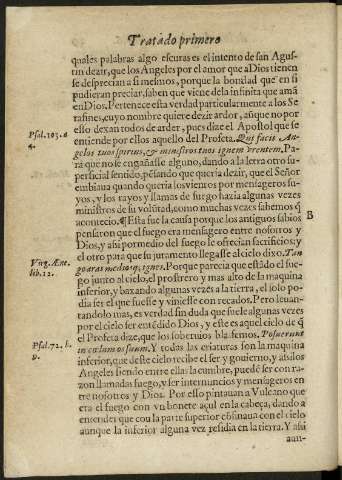 Tratado primero
quales palabras algo escuras es el intento de san Agus-
tin dezir, que los Angeles por el amor que a Dios tienen
se desprecian a si mesmos, porque la bondad que en si
pudieran preciar, saben que viene dela infinita que amã
en Dios. Pertenece esta verdad particularmente a los Se
rafines, cuyo nombre quiere dezir ardor, aũque no por
Psal. 103. a
esso dexan todos de arder, pues dize el Apostol que se
4.
entiende por ellos aquello del Profeta. Qui facis An-
gelos tuos spiritus, & ministros tuos ignem vrentem. Pa
rà que no se engañasse alguno, dando a la letra otro su-
perficial sentido, pẽsando que queria dezir, que el Señor
embiaua quando queria los vientos por mensageros su-
yos, y los rayos y llamas de fuego hazia algunas vezes
ministros de su volũtad, como muchas vezes sabemos q̃
acontecio. ¶ Esta fue la causa porque los antiguos sabios
B
pensaron que el fuego era mensagero entre nosotros y
Dios, y assi por medio del fuego le ofrecian sacrificios; y
el otro para que su juramento llegasse al cielo dixo. Tan
Virg. Æne.
go aras medios q; ignes. Porque parecia que estãdo el fue-
lib. 12.
go junto al cielo, el prostrero y mas alto de la maquina
inferior, y baxando algunas vezes a la tierra, el solo po-
dia ser el que fuesse y viniesse con recados. Pero leuan-
tandolo mas, es verdad sin duda que suele algunas vezes
por el cielo ser entẽdido Dios, y este es aquel cielo de q̃
el Profeta dize, que los soberuios blasfemos. Posuerunt
Psal. 72. b.
in cœlum os suum. Y todas las criaturas son la maquina
9.
inferior, que deste cielo recibe el ser y gouierno, y assi los
Angeles siendo entre ellas la cumbre, puedẽ ser con ra-
zon llamadas fuego, y ser internuncios y mensageros en
tre nosotros y Dios. Por esso pintauan a Vulcano que
era el fuego con vn bonete açul en la cabeça, dando a
entender que cõ la parte superior cõfinaua con el cielo
aunque la inferior alguna vez residia en la tierra. Y assi
aun-